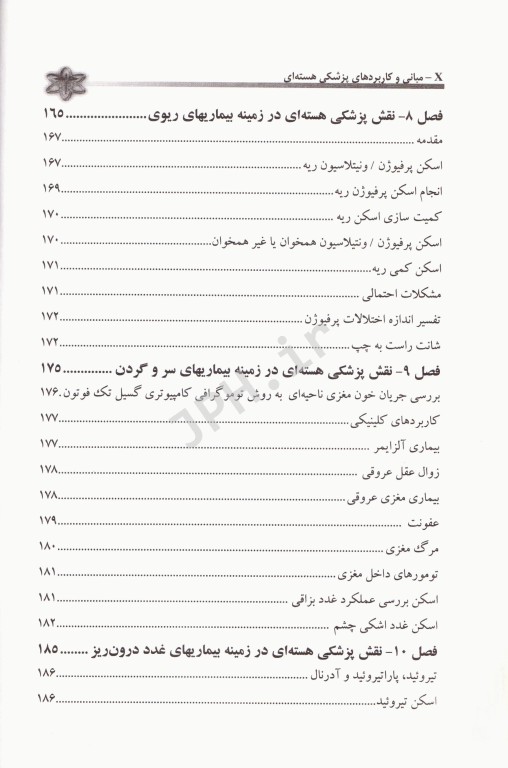 X – مبانی و کاربردهای پزشکی هسته‌ای
فصل ۸- نقش پزشکی هسته‌ای در زمینه بیماریهای ریوی.......................۱۶۵
مقدمه ....................................................................................۱۶۷
اسکن پرفیوژن / ونیتلاسیون ریه.........................................................۱۶۷
انجام اسکن پرفیوژن ریه..................................................................۱۶۹
کمیت سازی اسکن ریه ..................................................................۱۷۰
اسکن پرفیوژن / ونتیلاسیون همخوان یا غیر همخوان.....................................۱۷۰
اسکن کمی ریه...........................................................................۱۷۱
مشکلات احتمالی ........................................................................۱۷۱
تفسیر اندازه اختلالات پرفیوژن..........................................................۱۷۲
شانت راست به چپ......................................................................۱۷۲
فصل ۹- نقش پزشکی هسته‌ای در زمینه بیماریهای سر و گردن ..............۱۷۵
بررسی جریان خون مغزی ناحیه‌ای به روش توموگرافی کامپیوتری گسیل تک فوتون.۱۷۶
کاربردهای کلینیکی......................................................................۱۷۷
بیماری آلزایمر ..........................................................................۱۷۷
زوال عقل عروقی .......................................................................۱۷۸
بیماری مغزی عروقی....................................................................۱۷۸
عفونت ..................................................................................۱۷۹
مرگ مغزی..............................................................................۱۸۰
تومورهای داخل مغزی...................................................................۱۸۱
اسکن بررسی عملکرد غدد بزاقی .......................................................۱۸۱
اسکن غدد اشکی چشم .................................................................۱۸۲
فصل ۱۰- نقش پزشکی هسته‌ای در زمینه بیماریهای غدد درون‌ریز ........۱۸۵
تیروئید، پاراتیروئید و آدرنال ...........................................................۱۸۶
اسکن تیروئید............................................................................۱۸۶
JPH.ir